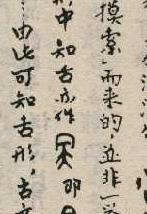 摸索而来的並非一
形中知古亦作 即
由此可知古形,古